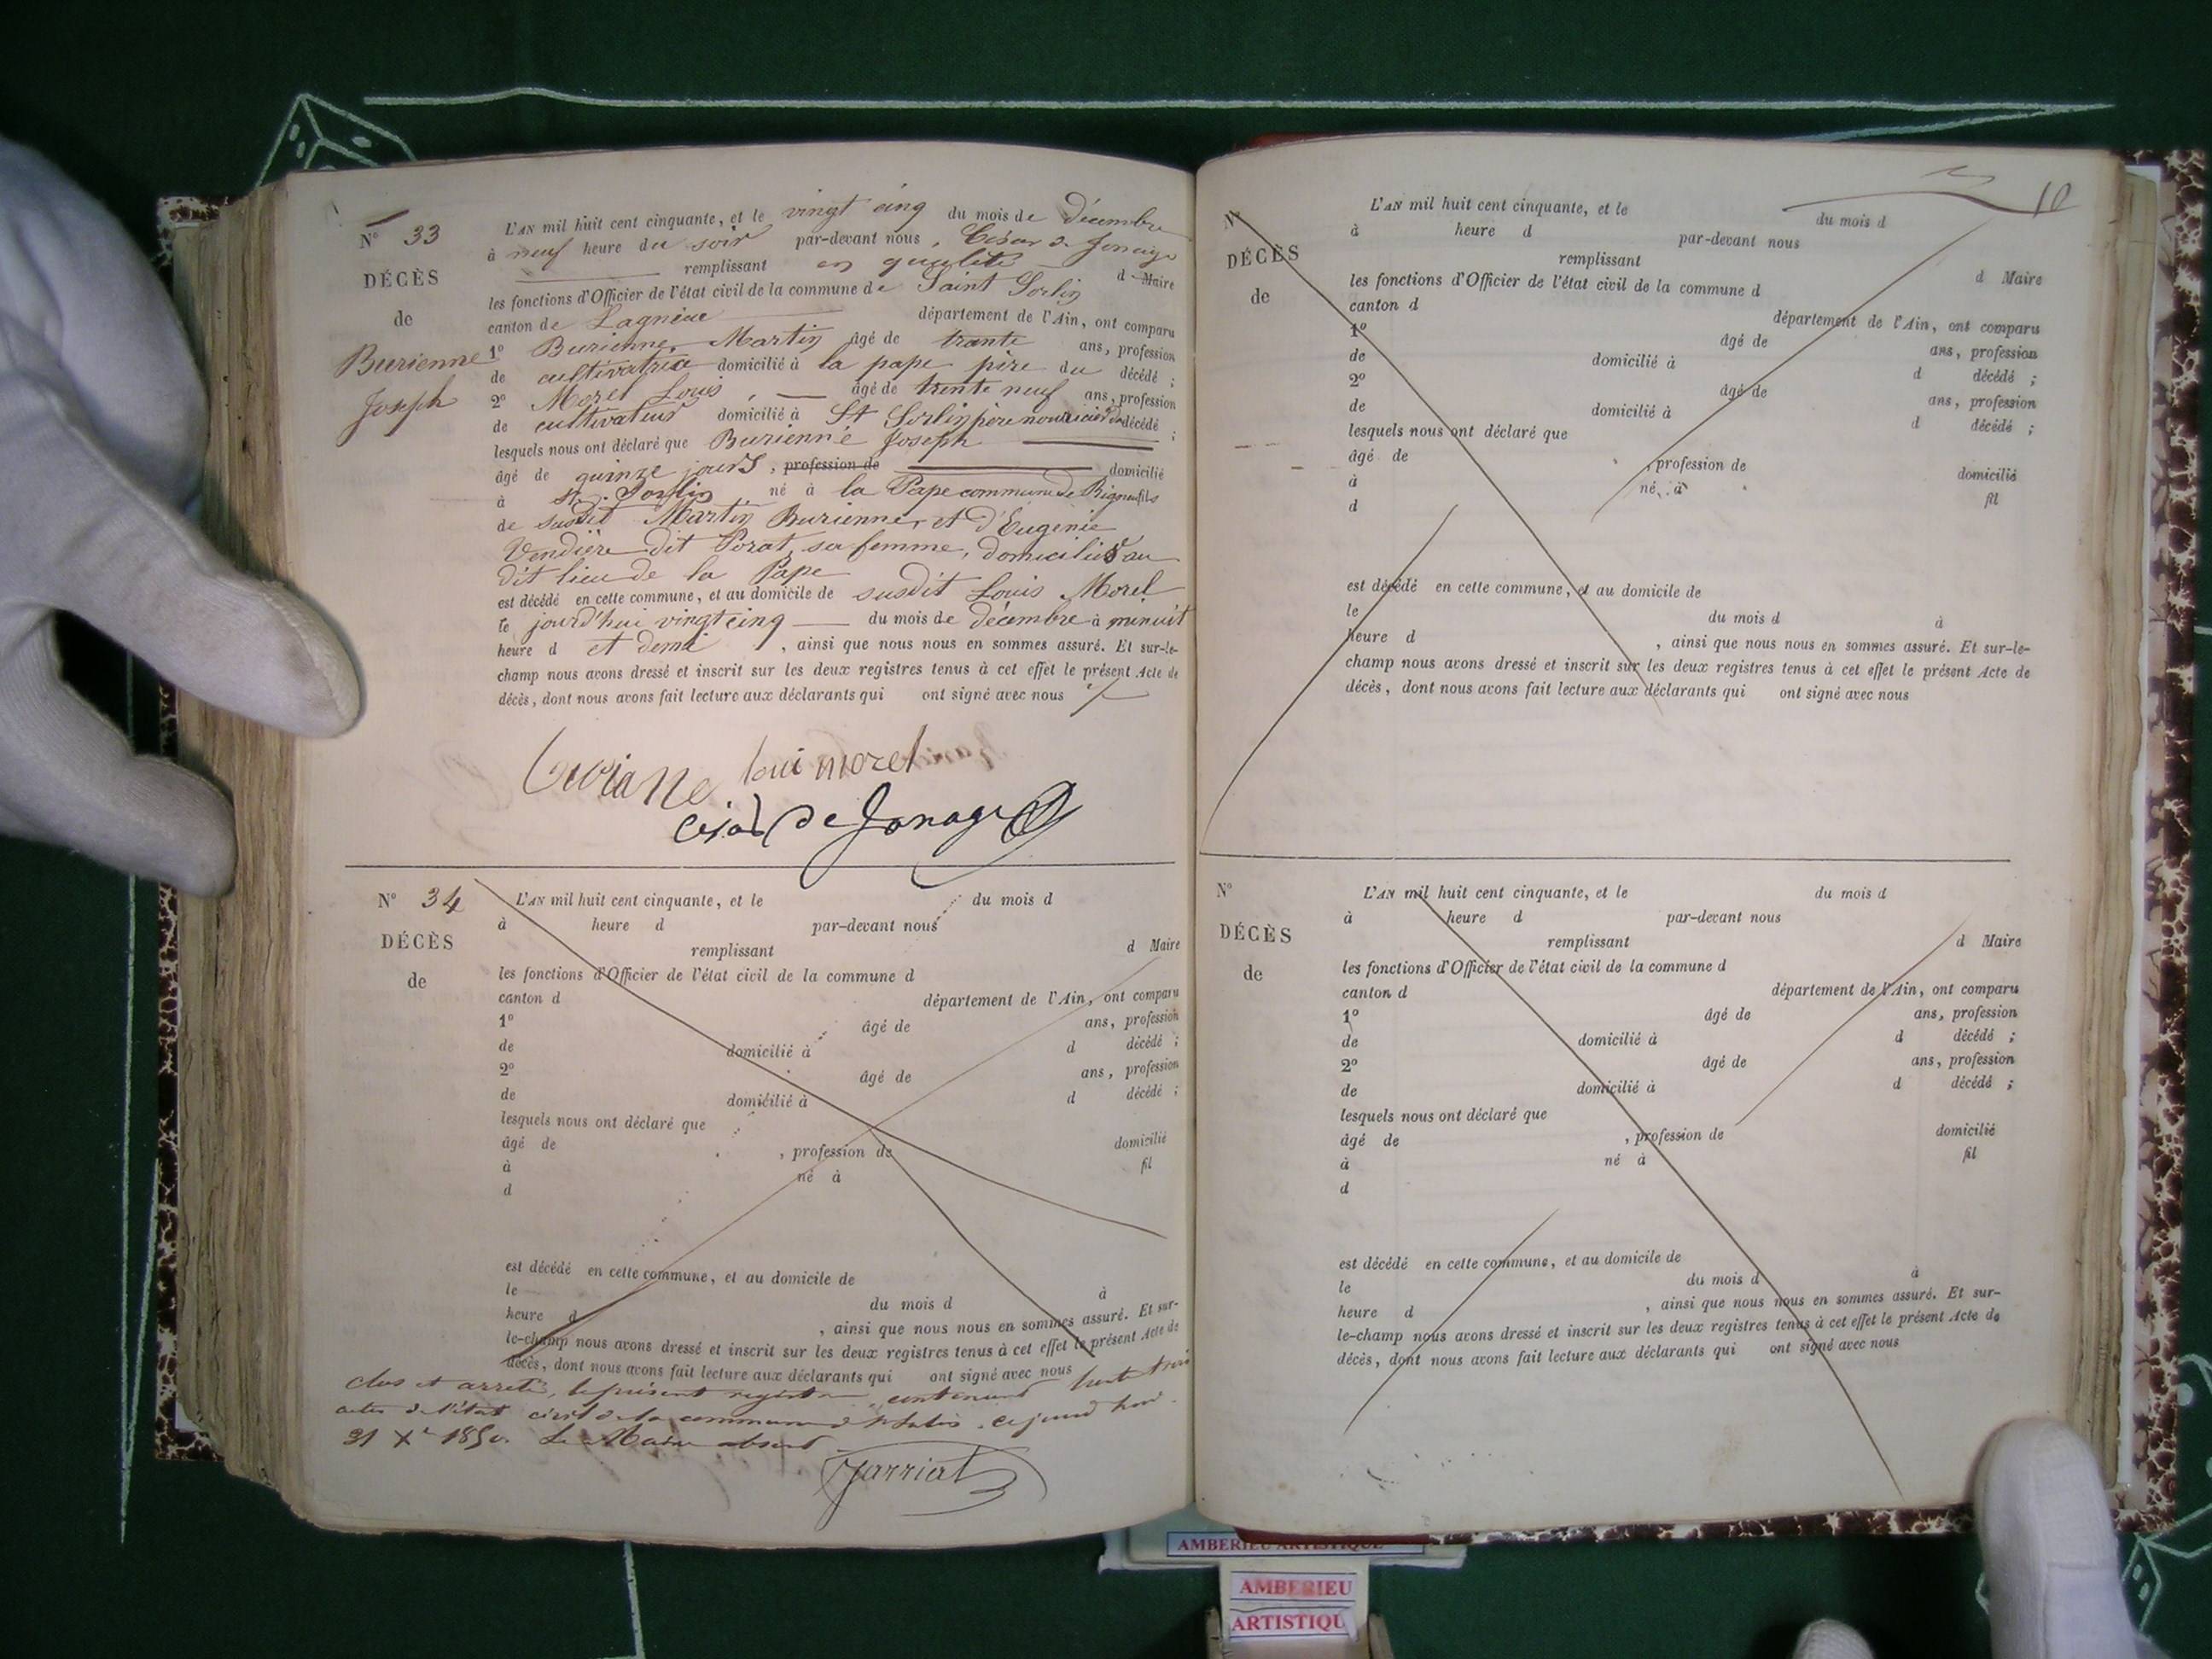 N° 33
DÉCÈS
de
Burienne
Joseph
L'AN mil huit cent cinquante, et le vingt cinq du mois de Décembre
à neuf heure du soir par-devant nous, César de Jonage
remplissant en qualité d Maire
les fonctions d'Officier de l'état civil de la commune de Saint Sorlin
canton de Lagnieu département de l'Ain, ont comparu
1° Burienne, Martin âgé de trante ans, profession
de cultivatrice domicilié à la pape père du décédé ;
2° Morel Louis, âgé de trente neuf ans, profession
de cultivateur domicilié à St Sorlin père nourricier du décédé ;
lesquels nous ont déclaré que Burienne Joseph
âgé de quinze jours, profession de domicilié
à St. Sorlin né à la Pape commune de fils
de susdit Martin Burienne, et d'Eugénie
Vendière dit Porat, sa femme, domiciliés au
dit lieu de la Pape
est décédé en cette commune, et au domicile de susdit Louis Morel
le jourd'hui vingt cinq du mois de décembre à minuit
heure d et demi, ainsi que nous nous en sommes assuré. Et sur-le-
champ nous avons dressé et inscrit sur les deux registres tenus à cet effet le présent Acte de
décès, dont nous avons fait lecture aux déclarants qui ont signé avec nous
loui morel
César de Jonage
N° 34
DÉCÈS
de
L'AN mil huit cent cinquante, et le du mois d
à heure d par-devant nous
remplissant d Maire
les fonctions d'Officier de l'état civil de la commune d
canton d département de l'Ain, ont comparu
1° âgé de ans, profession
de domicilié à d décédé ;
2° âgé de ans, profession
de domicilié à d décédé ;
lesquels nous ont déclaré que
âgé de , profession de domicilié
à né à fil
d
est décédé en cette commune, et au domicile de
le du mois d à
heure d , ainsi que nous nous en sommes assuré. Et sur-
le-champ nous avons dressé et inscrit sur les deux registres tenus à cet effet le présent Acte de
décès, dont nous avons fait lecture aux déclarants qui ont signé avec nous
clos et arreté, le présent registre, contenant trente trois
actes de l'état civil de la commune de St Sorlin. ce jourd hui
31 Xe 1850. Le Maire absent
Jarriat
10
N°
DÉCÈS
de
L'AN mil huit cent cinquante, et le du mois d
à heure d par-devant nous
remplissant d Maire
les fonctions d'Officier de l'état civil de la commune d
canton d département de l'Ain, ont comparu
1° âgé de ans, profession
de domicilié à d décédé ;
2° âgé de ans, profession
de domicilié à d décédé ;
lesquels nous ont déclaré que
âgé de , profession de domicilié
à né à fil
d
est décédé en cette commune, et au domicile de
le du mois d à
heure d , ainsi que nous nous en sommes assuré. Et sur-le-
champ nous avons dressé et inscrit sur les deux registres tenus à cet effet le présent Acte de
décès, dont nous avons fait lecture aux déclarants qui ont signé avec nous
N°
DÉCÈS
de
L'AN mil huit cent cinquante, et le du mois d
à heure d par-devant nous
remplissant d Maire
les fonctions d'Officier de l'état civil de la commune d
canton d département de l'Ain, ont comparu
1° âgé de ans, profession
de domicilié à d décédé ;
2° âgé de ans, profession
de domicilié à d décédé ;
lesquels nous ont déclaré que
âgé de , profession de domicilié
à né à fil
d
est décédé en cette commune, et au domicile de
le du mois d à
heure d , ainsi que nous nous en sommes assuré. Et sur-
le-champ nous avons dressé et inscrit sur les deux registres tenus à cet effet le présent Acte de
décès, dont nous avons fait lecture aux déclarants qui ont signé avec nous
AMBERIEU ARTISTIQUE
AMBERIEU
ARTISTIQU